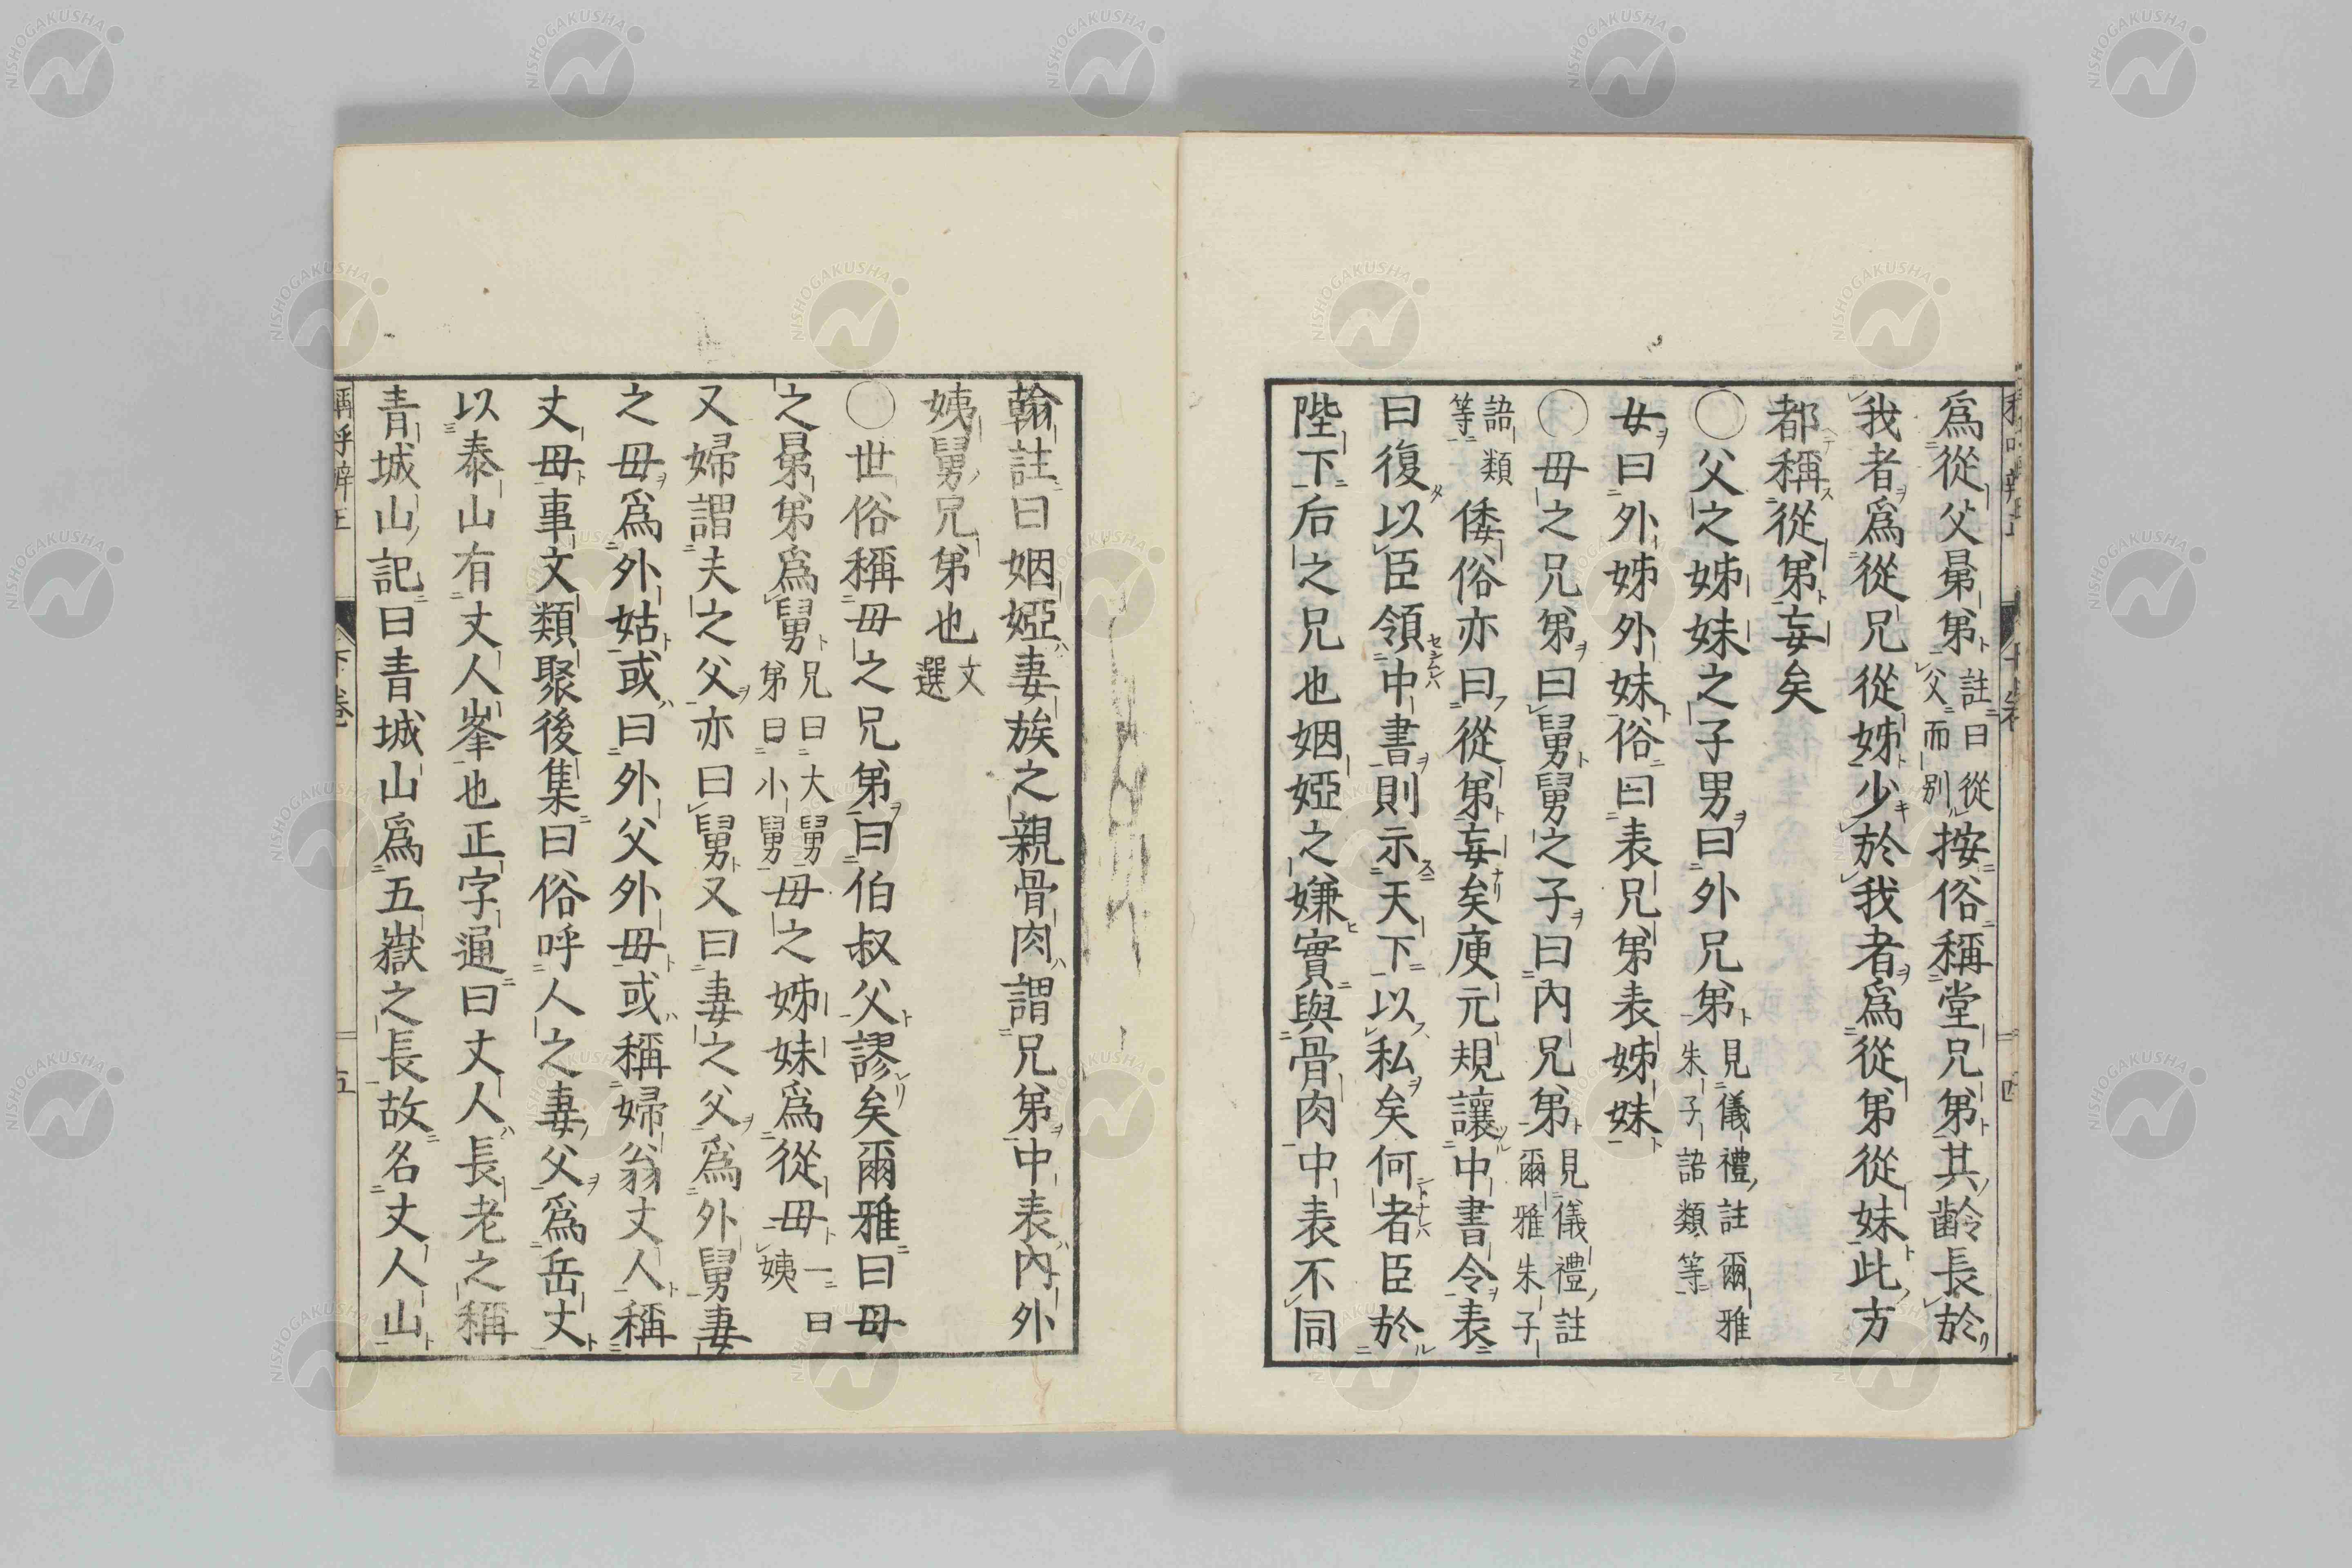 爲從父晜弟註曰從父而別按俗稱堂兄弟其齡長於
我者爲從兄從姊少於我者爲從弟從妹此方
都稱從弟妄矣
○父之姊妹之子男曰外兄弟見儀禮註爾雅朱子語類等
女曰外姊外妹俗曰表兄弟表姊妹
○母之兄弟曰舅舅之子曰內兄弟見儀禮註爾雅朱子
語類等倭俗亦曰從弟妄矣庾元規讓中書令表
曰復以臣領中書則示天下以私矣何者臣於
陛下后之兄也姻婭之嫌實與骨肉中表不同
翰註曰姻婭妻族之親骨肉謂兄弟中表內外
姨舅兄弟也文選
○世俗稱母之兄弟曰伯叔父謬矣爾雅曰母
之晜弟爲舅兄曰大舅弟曰小舅母之姊妹爲從母一曰姨
又婦謂夫之父亦曰舅又曰妻之父爲外舅妻
之母爲外姑或曰外父外母或稱婦翁丈人稱
丈母事文類聚後集曰俗呼人之妻父爲岳丈
以泰山有丈人峯也正字通曰丈人長老之稱
青城山記曰青城山爲五嶽之長故名丈人山
稱呼辨正 下卷 五
NISHOGAKUSHA